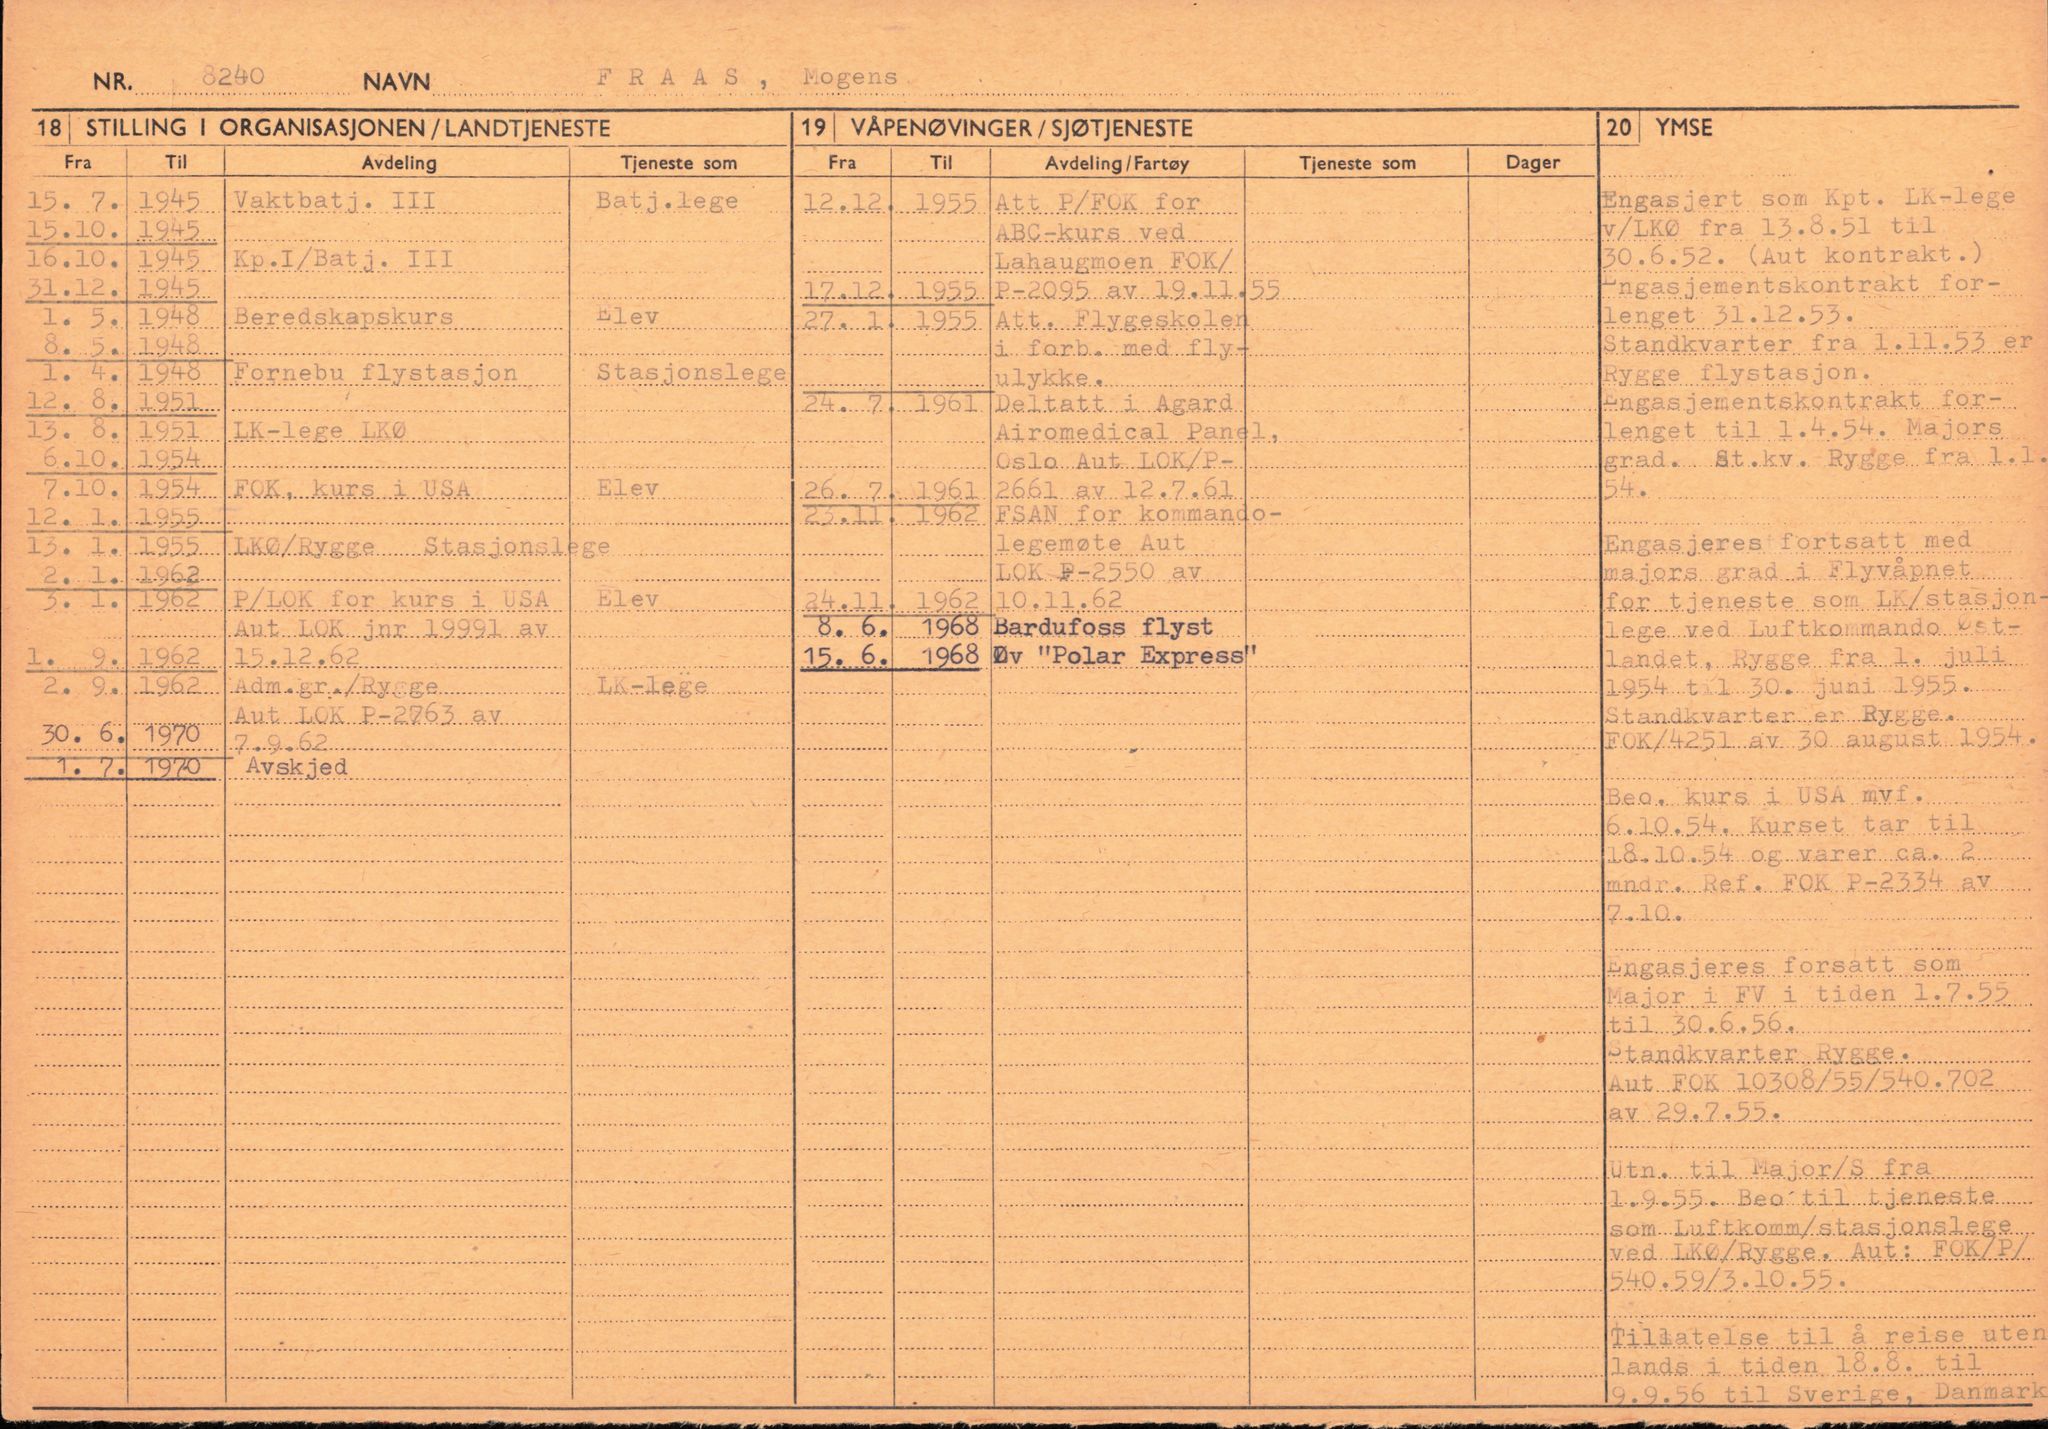 NR. 8240 NAVN F R A A S , Mogens
18 STILLING I ORGANISASJONEN/LANDTJENESTE
Fra Til Avdeling Tjeneste som
15. 7. 1945 Vaktbatj. III Batj.lege
15.10. 1945
16.10. 1945 Kp.I/Batj. III
31.12. 1945
1. 5. 1948 Beredskapskurs Elev
8. 5. 1948
1. 4. 1948 Fornebu flystasjon Stasjonslege
12. 8. 1951
13. 8. 1951 LK-lege LKØ
6.10. 1954
7.10. 1954 FOK, kurs i USA Elev
12. 1. 1955
13. 1. 1955 LKØ/Rygge Stasjonslege
2. 1. 1962
3. 1. 1962 P/LOK for kurs i USA Elev
Aut LOK jnr 19991 av
1. 9. 1962 15.12.62
2. 9. 1962 Adm.gr./Rygge LK-lege
Aut LOK P-2763 av
30. 6. 1970 7.9.62
1. 7. 1970 Avskjed
19 VÅPENØVINGER/SJØTJENESTE
Fra Til Avdeling/Fartøy Tjeneste som Dager
12.12. 1955 Att P/FOK for
ABC-kurs ved
Lahaugmoen FOK/
17.12. 1955 P-2095 av 19.11.55
27. 1. 1955 Att. Flygeskolen
i forb. med fly-
ulykke.
24. 7. 1961 Deltatt i Agard
Airomedical Panel,
Oslo Aut LOK/P-
26. 7. 1961 2661 av 12.7.61
23.11. 1962 FSAN for kommando-
legemøte Aut
LOK P-2550 av
24.11. 1962 10.11.62
8. 6. 1968 Bardufoss flyst
15. 6. 1968 Øv "Polar Express"
20 YMSE
Engasjert som Kpt. LK-lege
v/LKØ fra 13.8.51 til
30.6.52. (Aut kontrakt.)
Engasjementskontrakt for-
lenget 31.12.53.
Standkvarter fra 1.11.53 er
Rygge flystasjon.
Engasjementskontrakt for-
lenget til 1.4.54. Majors
grad. St.kv. Rygge fra 1.1.
54.
Engasjeres fortsatt med
majors grad i Flyvåpnet
for tjeneste som LK/stasjon-
lege ved Luftkommando Øst-
landet, Rygge fra 1. juli
1954 til 30. juni 1955.
Standkvarter er Rygge.
FOK/4251 av 30 august 1954.
Beo. kurs i USA mvf.
6.10.54. Kurset tar til
18.10.54 og varer ca. 2
mndr. Ref. FOK P-2334 av
7.10.
Engasjeres forsatt som
Major i FV i tiden 1.7.55
til 30.6.56.
Standkvarter Rygge.
Aut FOK 10308/55/540.702
av 29.7.55.
Utn. til Major/S fra
1.9.55. Beo til tjeneste
som Luftkomm/stasjonslege
ved LKØ/Rygge. Aut: FOK/P/
540.59/3.10.55.
Tillatelse til å reise uten
lands i tiden 18.8. til
9.9.56 til Sverige, Danmark